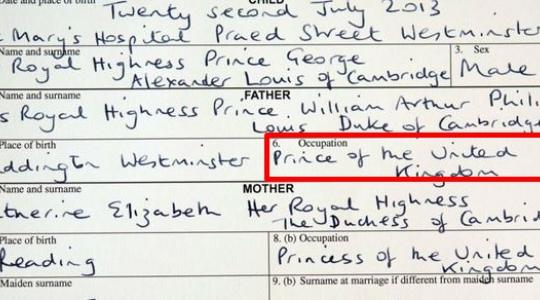 Date and place of birth
CHILD
Twenty second July 2013
Mary's Hospital Praed Street Westminster
Name and surname
3. Sex
Royal Highness Prince George
Alexander Louis of Cambridge
Male
Name and surname
FATHER
s Royal Highness Prince William Arthur Phili
Louis Duke of Cambridge
Place of birth
6. Occupation
ddington Westminster
Prince of the United
Kingdom
Name and surname
MOTHER
therine Elizabeth Her Royal Highness
The Duchess of Cambrid
Place of birth
8. (b) Occupation
Reading
Princess of the United
Kingdom
Maiden surname
9. (b) Surname at marriage if different from maiden surname